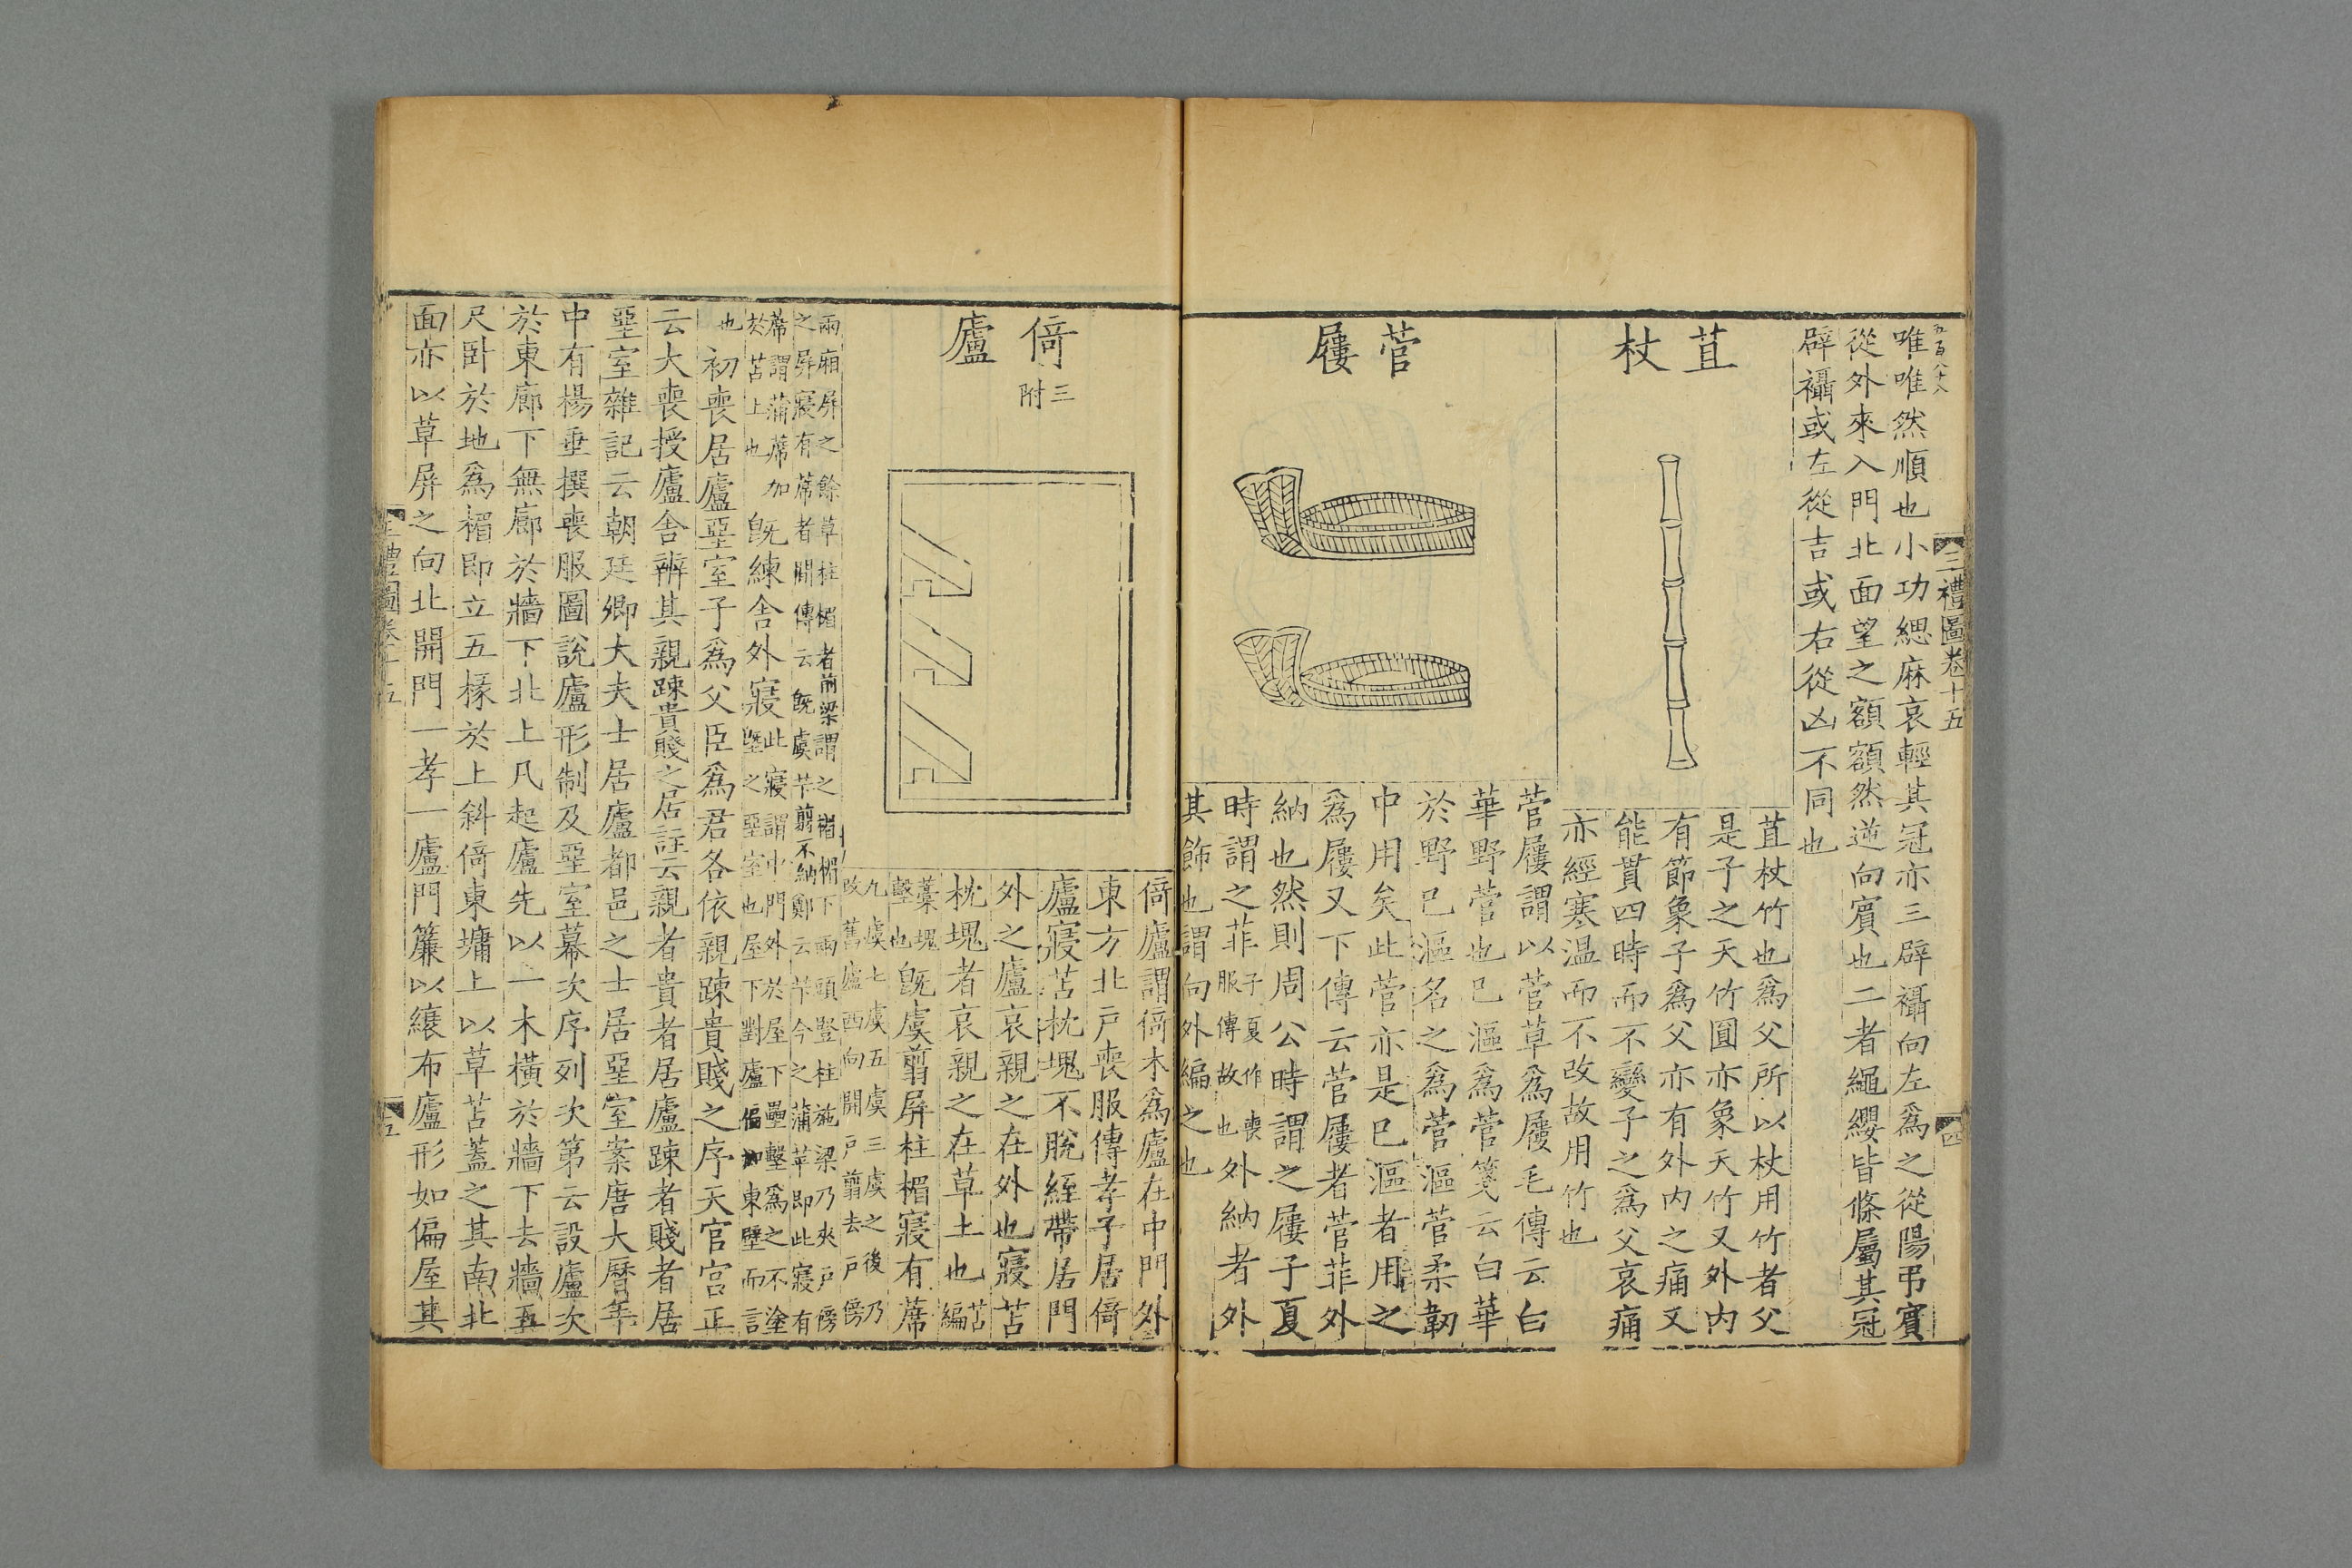 五百八十八
三禮圖卷十五
四
唯唯然順也小功緦麻哀輕其冠亦三辟襵向左爲之從陽弔賔
從外來入門北面望之額額然逆向賔也二者繩纓皆條屬其冠
辟襵或左從吉或右從凶不同也
苴杖
苴杖竹也爲父所以杖用竹者父
是子之天竹圓亦象天竹又外内
有節象子爲父亦有外内之痛又
能貫四時而不變子之爲父哀痛
亦經寒温而不改故用竹也
菅屨
菅屨謂以菅草爲屨毛傳云白
華野菅也已漚爲菅箋云白華
於野已漚名之爲菅漚菅柔韌
中用矣此菅亦是已漚者用之
爲屨又下傳云菅屨者菅菲外
納也然則周公時謂之屨子夏
時謂之菲子夏作喪服傳故也外納者外
其飾也謂向外編之也
倚廬
三附
倚廬謂倚木爲廬在中門外
東方北戸喪服傳孝子居倚
廬寢苫枕塊不脫絰帶居門
外之廬哀親之在外也寢苫
枕塊者哀親之在草土也苫編
藁塊墼也旣虞翦屏柱楣寢有蓆
九虞七虞五虞三虞之後乃改舊廬西向開戸翦去戸傍
兩廂屏之餘草柱楣者前梁謂之楣楣下兩頭豎柱施梁乃夾戸傍
之屏寢有蓆者閒傳云旣虞苄翦不納鄭云苄今之蒲苹即此寢有
蓆謂蒲蓆加於苫上也旣練舍外寢此寢謂中門外於屋下壘墼爲之不塗
塈之堊室也屋下對廬偏加東壁而言
也初喪居廬堊室子爲父臣爲君各依親踈貴賤之序天官宫正
云大喪授廬舍辨其親踈貴賤之居註云親者貴者居廬踈者賤者居
堊室雜記云朝廷卿大夫士居廬都邑之士居堊室案唐大曆年
中有楊垂撰喪服圖說廬形制及堊室幕次序列次第云設廬次
於東廊下無廊於牆下北上凡起廬先以一木橫於牆下去牆五
尺卧於地爲楣即立五椽於上斜倚東墉上以草苫蓋之其南北
面亦以草屏之向北開門一孝一廬門簾以縗布廬形如偏屋其
三禮圖卷十五
五